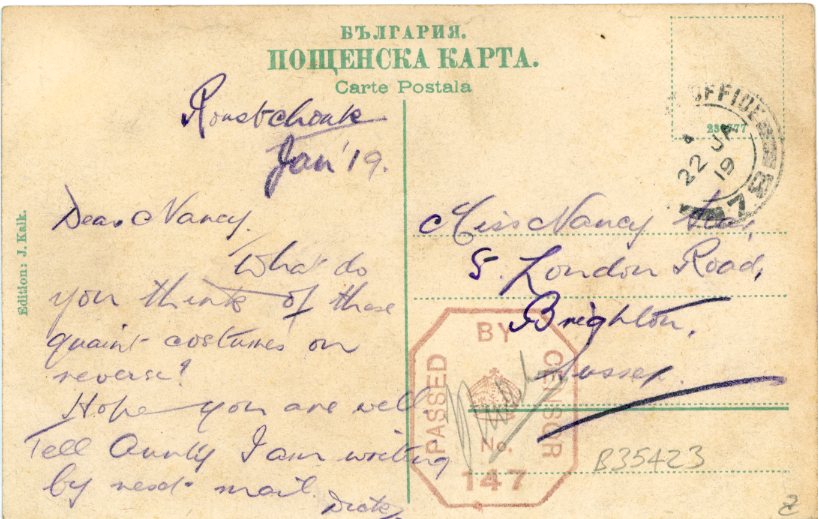 БЪЛГАРИЯ.
ПОЩЕНСКА КАРТА.
Carte Postala
Roustchouk
Jan '19.
Dear Nancy.
What do
you think of these
quaint costumes on
reverse?
Hope you are well
Tell Aunty I am writing
by next mail.
Dick
Miss Nancy
5. London Road,
Brighton,
Sussex.
OFFICE
22 JA
19
PASSED BY CENSOR
No.
147
B35423
Edition: J. Kalk.